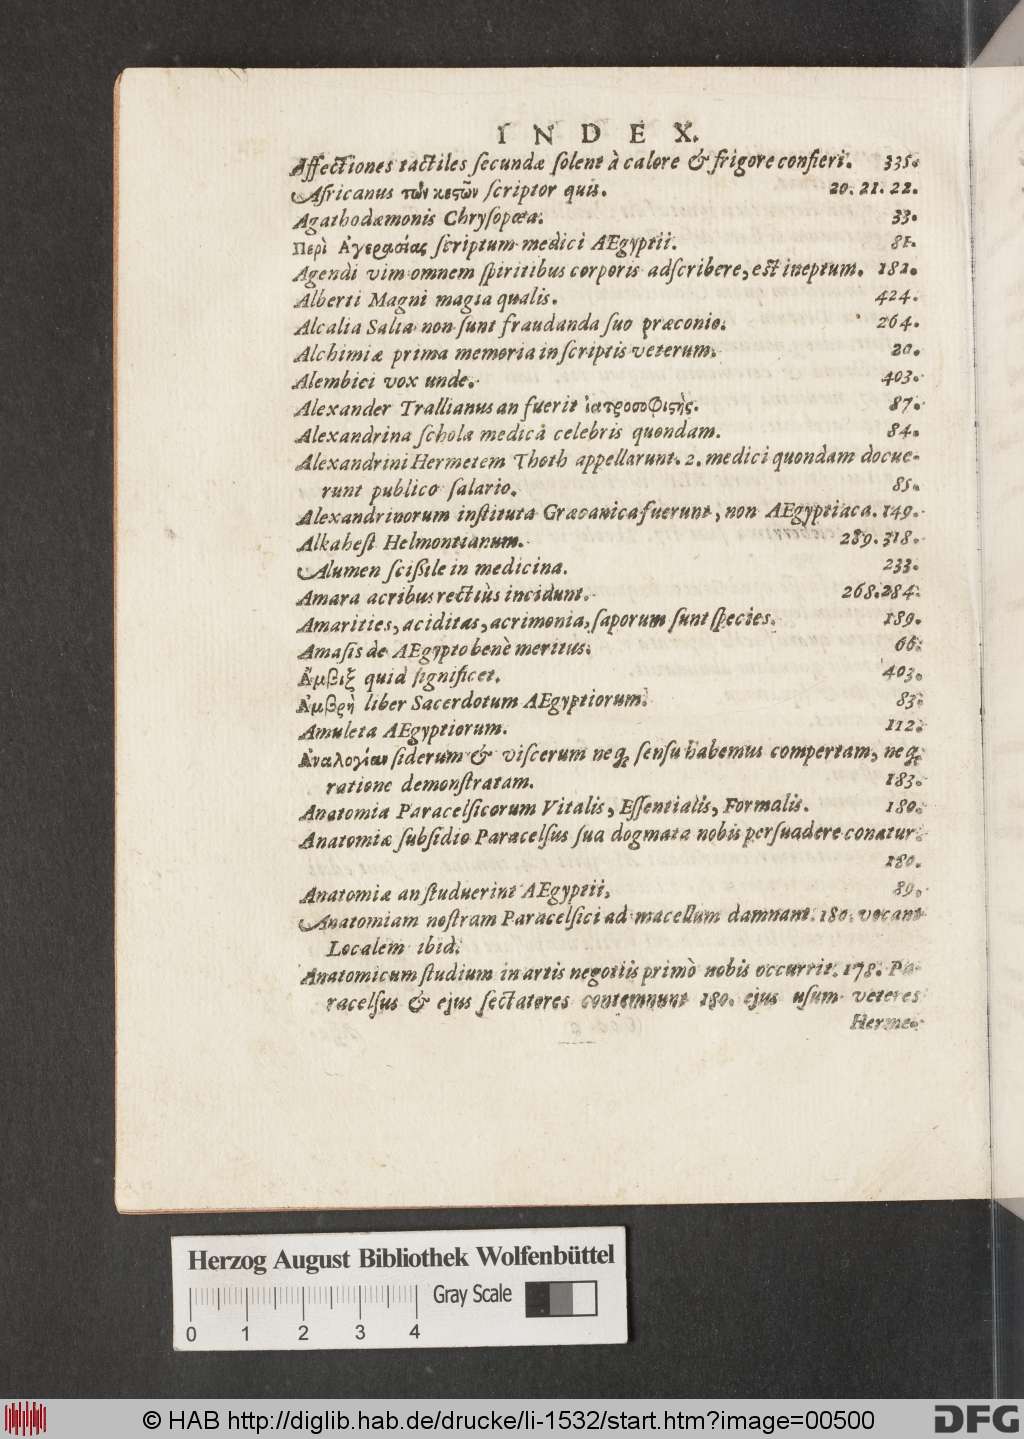 INDEX.
Affectiones tactiles ſecundæ ſolent à calore & frigore confieri. 335.
Africanus τῶν κεςῶν ſcriptor quis. 20. 21. 22.
Agathodæmonis Chryſopœa. 33.
Περὶ Ἀγερασίας ſcriptum medici AEgyptii. 81.
Agendi vim omnem ſpiritibus corporis adſcribere, eſt ineptum. 182.
Alberti Magni magia qualis. 424.
Alcalia Salia non ſunt fraudanda ſuo præconio. 264.
Alchimiæ prima memoria in ſcriptis veterum. 20.
Alembici vox unde. 403.
Alexander Trallianus an fuerit ἰατροσοφιςὴς. 87.
Alexandrina ſchola medica celebris quondam. 84.
Alexandrini Hermetem Thoth appellarunt. 2. medici quondam docue-
runt publico ſalario. 85.
Alexandrinorum inſtituta Græcanica fuerunt, non AEgyptiaca. 149.
Alkaheſt Helmontianum. 289. 318.
Alumen ſciſsile in medicina. 233.
Amara acribus rectiùs incidunt. 268. 284.
Amarities, aciditas, acrimonia, ſaporum ſunt ſpecies. 189.
Amaſis de AEgypto benè meritus. 66.
Ἄμβιξ quid ſignificet. 403.
Ἀμβρὴ liber Sacerdotum AEgyptiorum. 83.
Amuleta AEgyptiorum. 112.
Ἀναλογίαν ſiderum & viſcerum neq; ſenſu habemus compertam, neq;
ratione demonſtratam. 183.
Anatomia Paracelſicorum Vitalis, Eſſentialis, Formalis. 180.
Anatomiæ ſubſidio Paracelſus ſua dogmata nobis perſuadere conatur.
180.
Anatomiæ an ſtuduerint AEgyptii. 89.
Anatomiam noſtram Paracelſici ad macellum damnant. 180. vocant
Localem ibid.
Anatomicum ſtudium in artis negotiis primò nobis occurrit. 178. Pa-
racelſus & ejus ſectatores contemnunt 180. ejus uſum veteres
Herme-
Herzog August Bibliothek Wolfenbüttel
Gray Scale
0 1 2 3 4
© HAB http://diglib.hab.de/drucke/li-1532/start.htm?image=00500
DFG